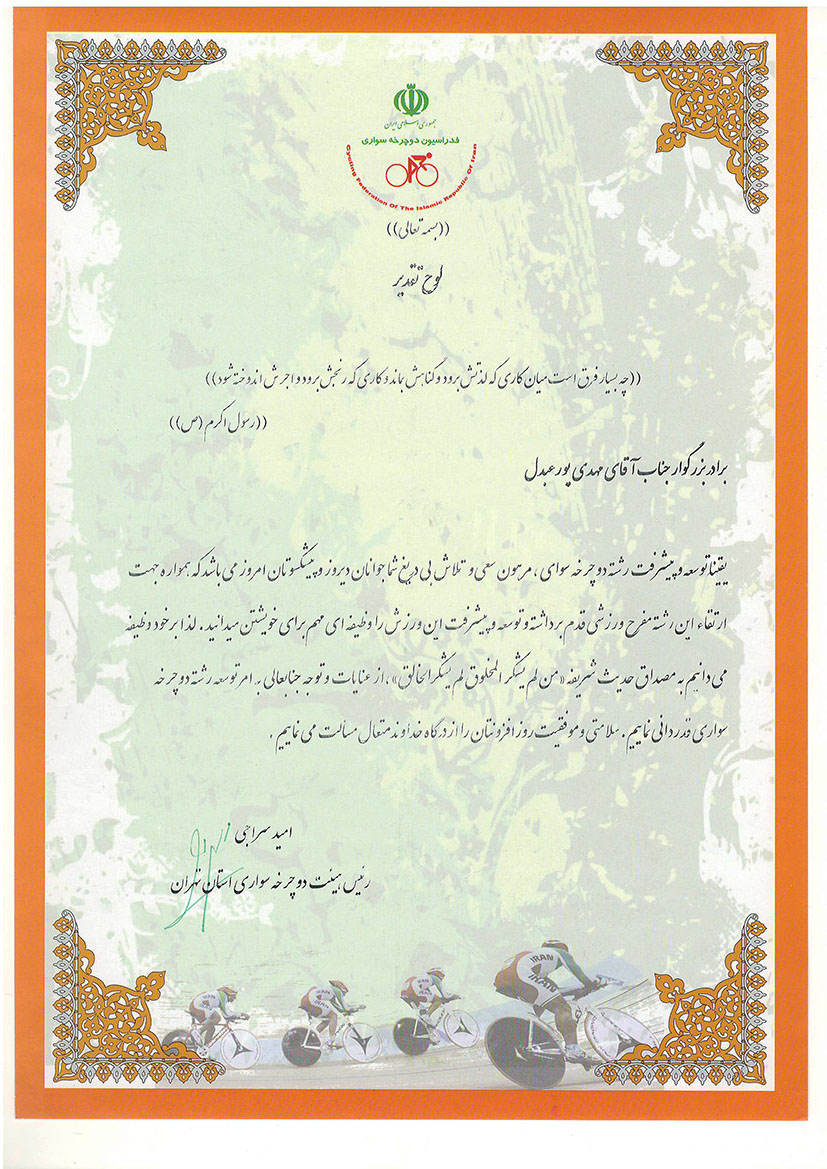 جمهوری اسلامی ایران
فدراسیون دوچرخه سواری
Cycling Federation Of The Islamic Republic Of Iran
((بسمه تعالی))
لوح تقدیر
((چه بسیار فرق است میان کاری که لذتش برود و گناهش بماند و کاری که رنجش برود و اجرش اندوخته شود))
((رسول اکرم (ص)))
برادر بزرگوار جناب آقای مهدی پور عبدل
یقینا توسعه و پیشرفت رشته دوچرخه سوای ، مرهون سعی و تلاش بی دریغ شما جوانان دیروز و پیشکسوتان امروز می باشد که همواره جهت
ارتقاء این رشته مفرح ورزشی قدم برداشته و توسعه و پیشرفت این ورزش را وظیفه ای مهم برای خویشتن میدانید . لذا بر خود وظیفه
می دانیم به مصداق حدیث شریفه «من لم یشکر المخلوق لم یشکر الخالق» ، از عنایات و توجه جنابعالی به امر توسعه رشته دوچرخه
سواری قدردانی نماییم . سلامتی و موفقیت روز افزونتان را از درگاه خداوند متعال مسألت می نماییم .
امید سراجی
رئیس هیئت دوچرخه سواری استان تهران
IRAN
IRAN